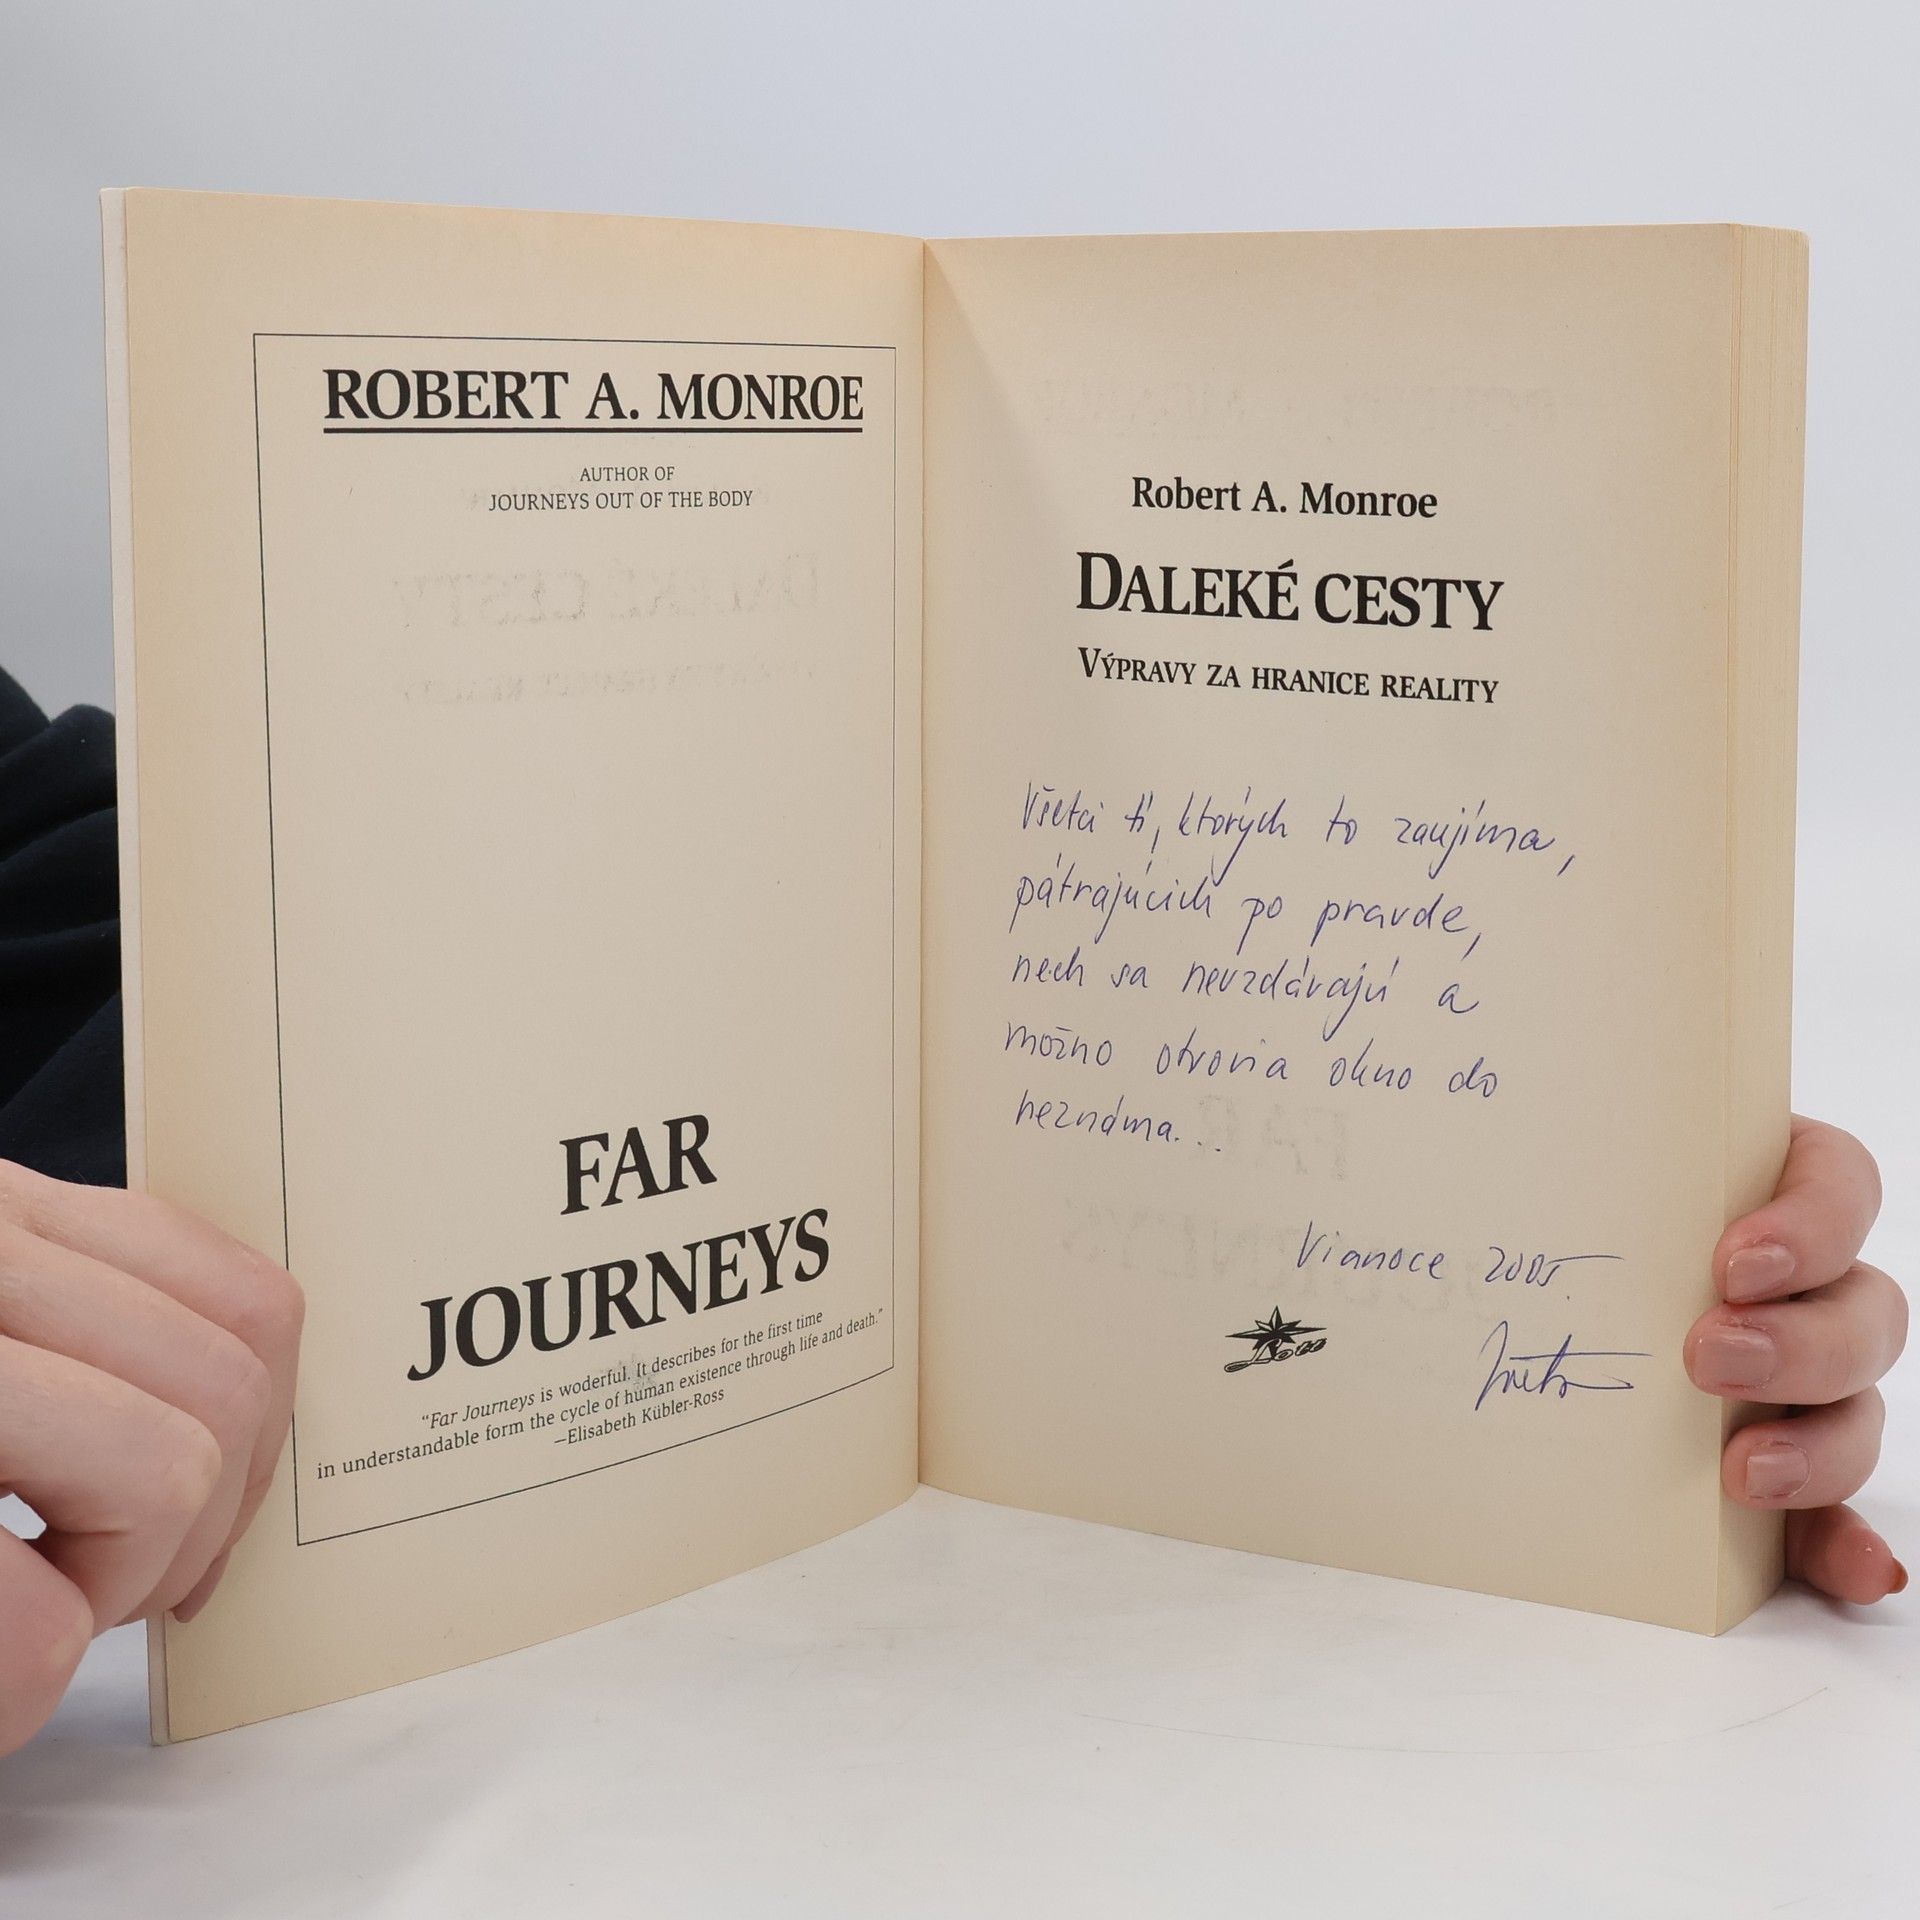 ROBERT A. MONROE
AUTHOR OF
JOURNEYS OUT OF THE BODY
FAR
JOURNEYS
“Far Journeys is woderful. It describes for the first time
in understandable form the cycle of human existence through life and death.”
—Elisabeth Kübler-Ross
Robert A. Monroe
DALEKÉ CESTY
VÝPRAVY ZA HRANICE REALITY
Všetci tí, ktorých to zaujíma,
pátrajúcich po pravde,
nech sa nevzdávajú a
možno otvoria okno do
neznáma...
Vianoce 2005.